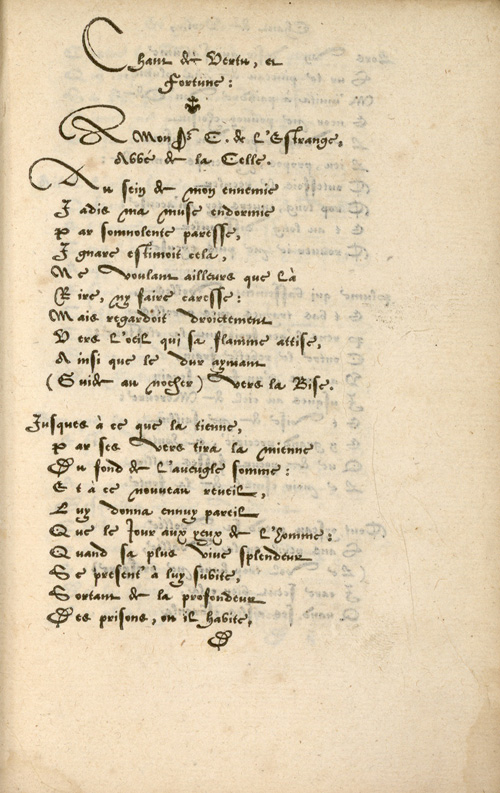 Chant de Vertu, et
Fortune:
A Mons.r C. de L'Estrange,
Abbé de la Celle.
Au sein de mon ennemie
Iadis ma muse endormie
Par somnolente paresse,
Ignare estimoit cela,
Ne voulant ailleurs que là
Rire, ny faire caresse:
Mais regardoit droictement
Vers l'oeil qui sa flamme attise,
Ainsi que le dur aymant
(Guide au nocher) vers la Bise.
Jusques à ce que la tienne,
Par ses vers tira la mienne
Du fond de l'aueugle somme:
Et à ce nouveau reueil,
Luy donna ennuy pareil
Que le Jour aux yeux de l'homme:
Quand sa plus viue splendeur
Se present à luy subite,
Sortant de la profondeur
Des prisons, ou il habite,
D